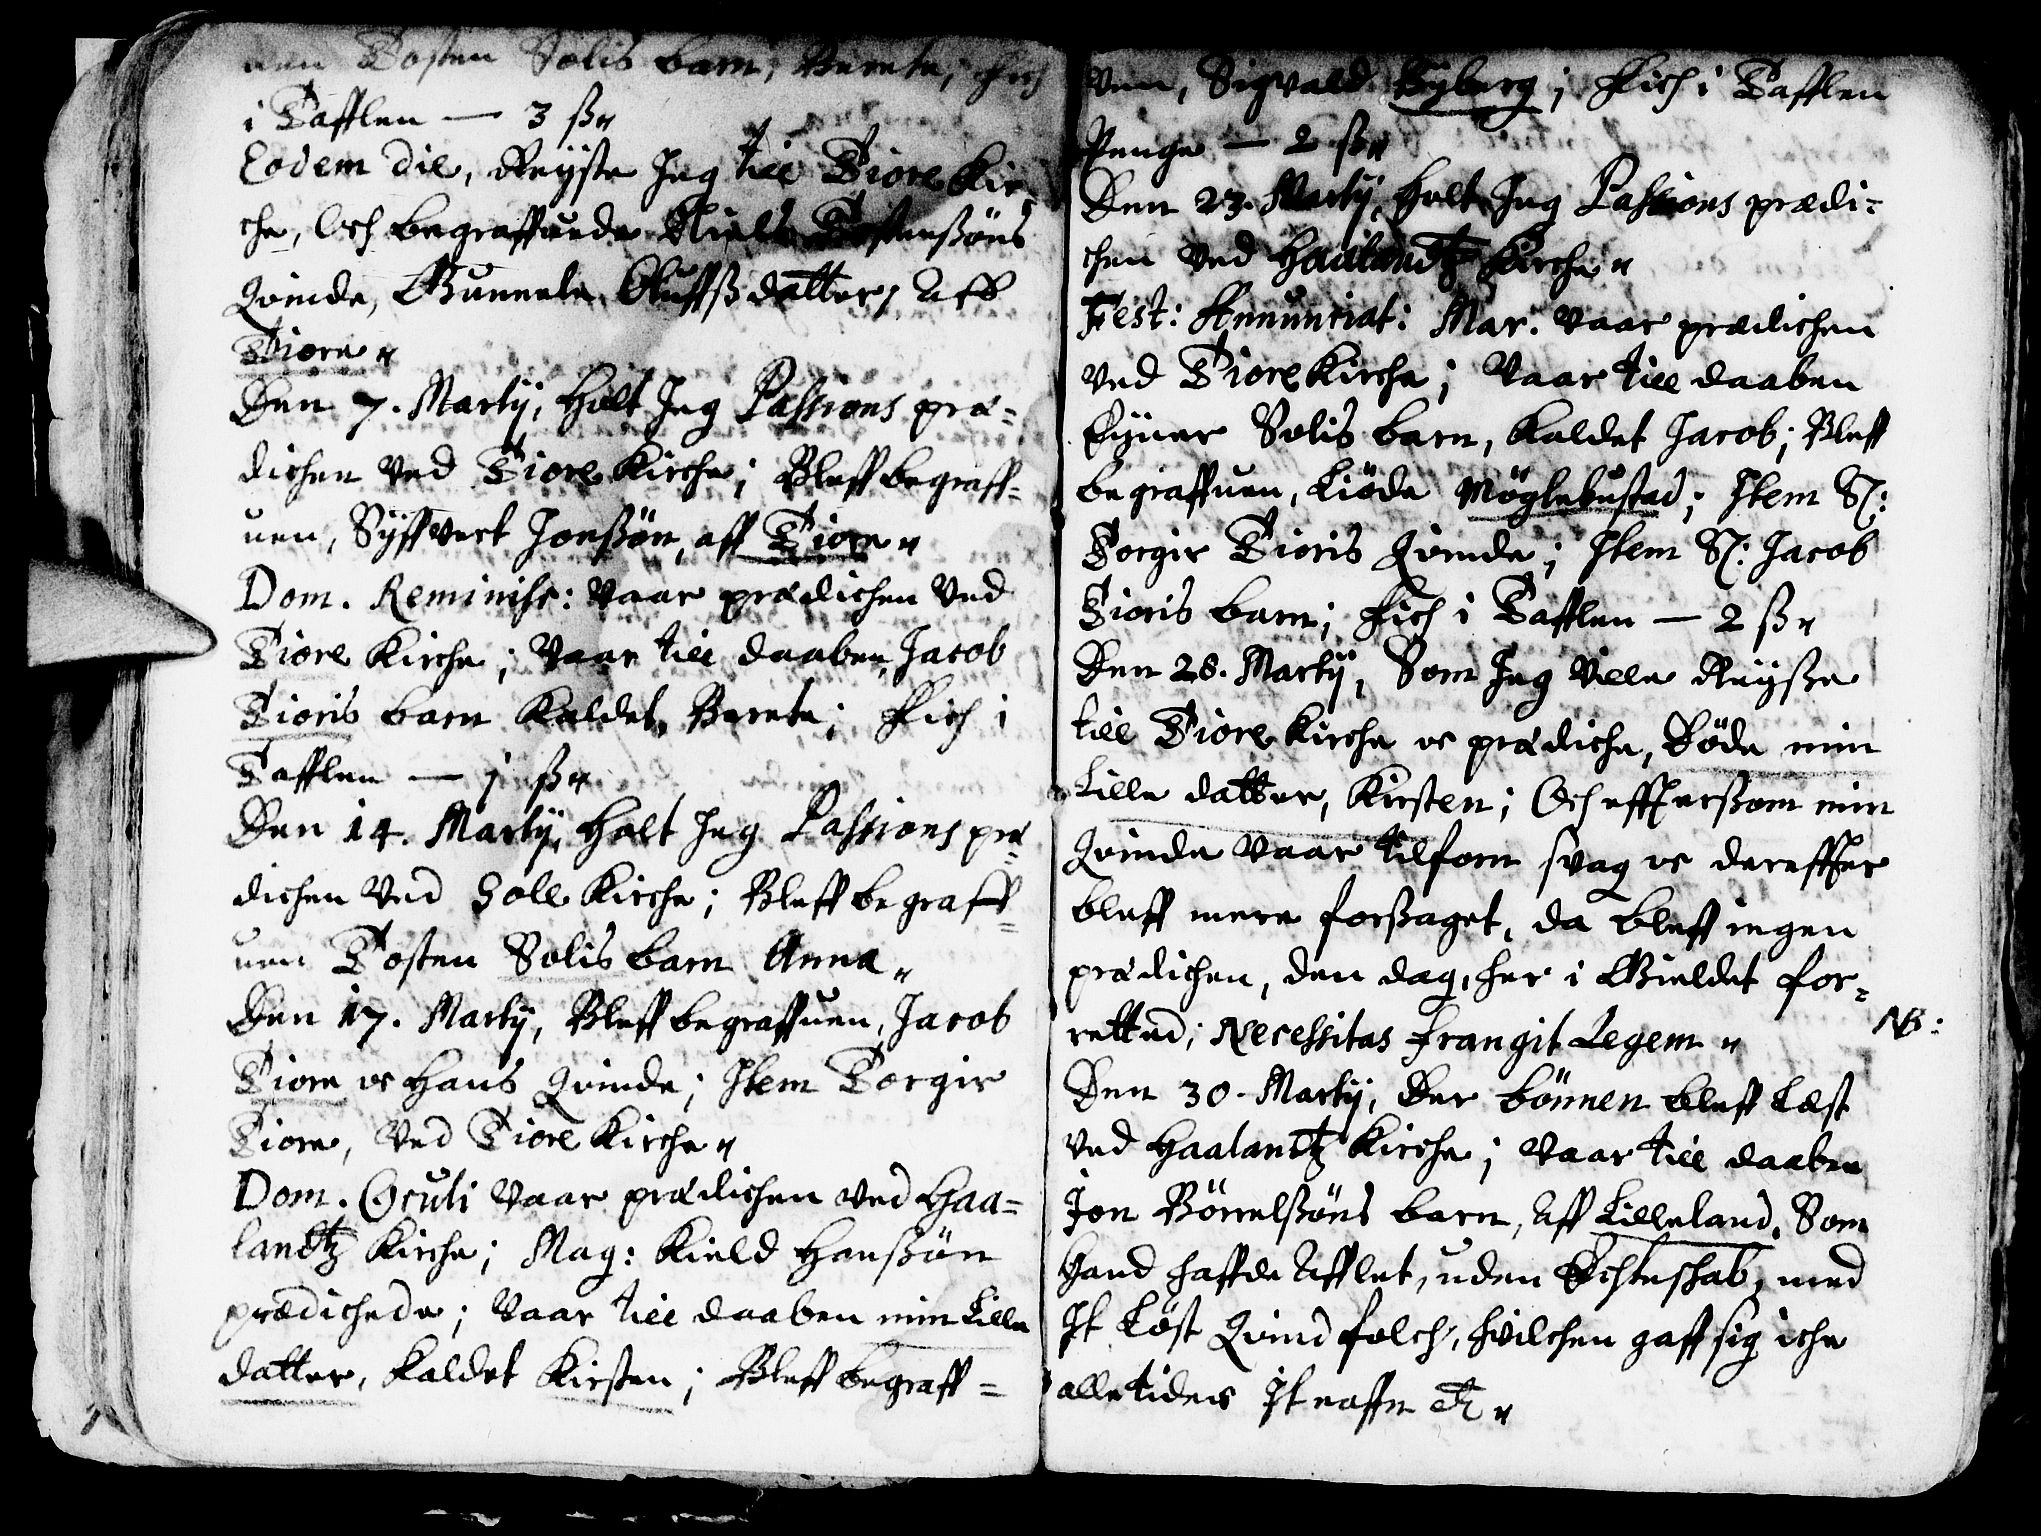 uen Tosten Solis barn, Berete; Fich
i Tafflen — 3 ß„
Eodem die, Reijste Jeg till Tiore Kir-
che, Och begraffuede Niels Tostenßöns
Qvinde, Gunnele Oluffßdatter, Aff
Tiore„
Den 7. Martij, Holt Jeg Passions præ-
dichen Ved Tiore Kirche; Bleff begraff-
uen, Syffvert Jonßön, aff Tiore„
Dom. Reminisc: Vaar prædichen Ved
Tiore Kirche; Vaar till daaben, Jacob
Tioris barn Kaldet, Berete; Fich i
Tafflen — j ß„
Den 14. Martij, Holt Jeg Passions præ-
dichen Ved Soele Kirche; Bleff begraff-
uen Tosten Solis barn Anna„
Den 17. Martij, Bleff begraffuen, Jacob
Tiore oc Hans Qvinde; Item Torgir
Tiore, Ved Tiore Kirche„
Dom. Oculi Vaar prædichen ved Haa-
landtz Kirche; Mag: Kield Honßön
prædichede; Vaar till daaben min Lille
datter, Kaldet Kirsten; Bleff begraff-
uen, Sigvald Byberg; Fich i Tafflen
Penge — 2 ß„
Den 23. Martij, Holt Jeg Passions prædi-
chen Ved Haalandtz Kirche„
Fest: Annunciat: Mar. Vaar prædichen
Ved Tiore Kirche; Vaar till daaben
Eyner Solis barn, Kaldet Jacob; Bleff
begraffuen, Liöde Möglebustad; Item Sl:
Torgir Tioris Qvinde; Item Sl: Jacob
Tioris barn; Fich i Tafflen — 2 ß„
Den 28. Martij, Som Jeg Ville Reijße
till Tiore Kirche oc prædiche, Döde min
Lille datter, Kirsten; Och effterßom min
Qvinde Vaar tilforn svag oc dereffter
bleff mere forßaget, da bleff ingen
prædichen, den dag, her i Gieldet for-
retted; Necessitas frangit Legem„
NB:
Den 30. Martij, Der bönnen bleff Læst
Ved Haalandtz Kirche; Vaar till daaben
Jon Börrelßöns barn, Aff Lilleland, Som
Hand haffde Afflet, uden Echteskab, med
It Löst Qvindfolch, hvilchen gaff sig iche
alletider It naffn etc„